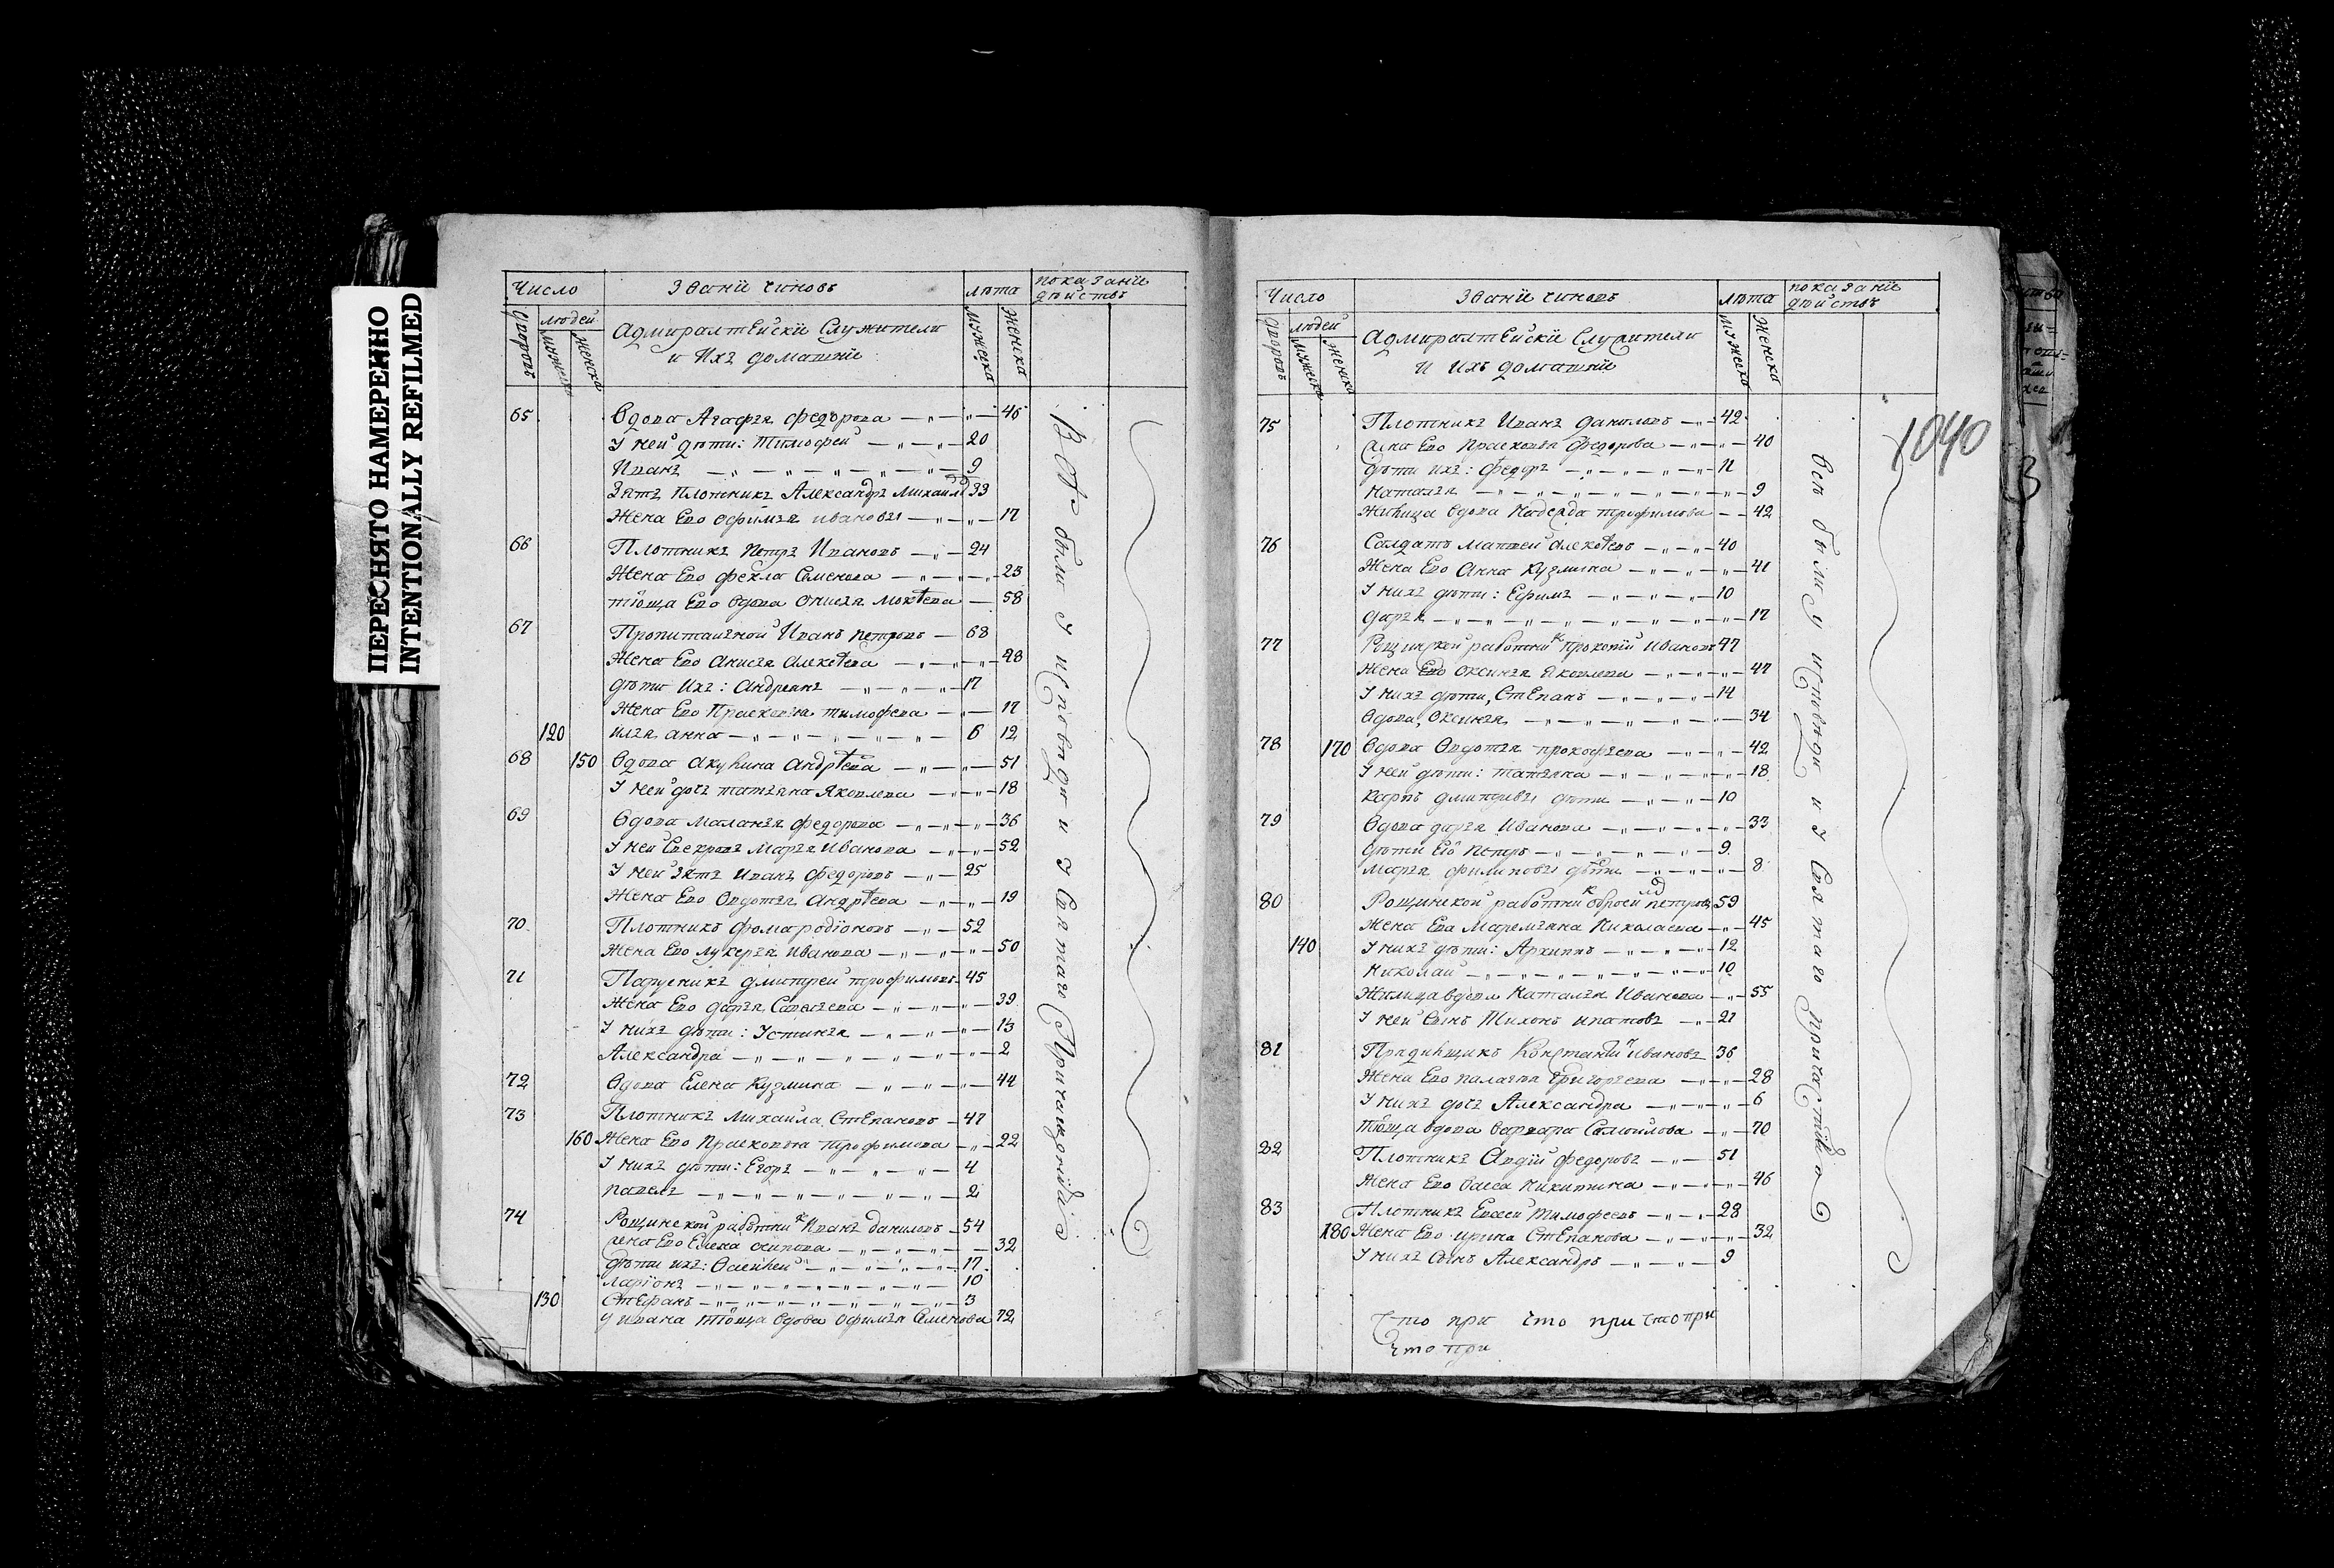 ПЕРЕСНЯТО НАМЕРЕННО
INTENTIONALLY REFILMED
Число Звании чиновъ лѣта показание дѣйствъ
дворовъ людей мужеска женска
Адмиралтейски Служители
и Ихъ домашнии
мужеска женска
65 Вдова Агафья федорова 46
У ней дѣти: Тимофей 20
Иванъ 9
Зять Плотникъ Александръ Михаил 33
Жена Ево Офимья ивановы 17
66 Плотникъ Петръ Ивановъ 24
Жена Ево фекла Семенова 23
тіоща Ево Вдова Онисья 58
67 Пропиташной Иванъ петровъ 68
Жена Ево Анисья Алексѣева 48
дѣти Ихъ: Андреянъ 17
Жена Ево Прасковья тимофева 17
120 илья анна 6 12
68 150 Вдова Акулина Андрѣева 51
У ней дочь татьяна Яковлева 18
69 Вдова Маланья федорова 36
У ней Свекровь Марья Иванова 52
У ней зять Иванъ федоровъ 25
Жена Ево Овдотья Андрѣева 19
70 Плотникъ фома родіоновъ 52
Жена Ево лукерья Иванова 50
71 Парусникъ дмитрей трофимовъ 45
Жена Ево дарья Савельева 39
У нихъ дѣти: Устинья 13
Александра 2
72 Вдова Елена Кузмина 44
73 Плотникъ Михаила Степановъ 47
160 Жена Ево Прасковья трофимова 22
У нихъ дѣти: Егоръ 4
павелъ 2
74 Рощинской работникъ Иванъ даниловъ 54
жена Ево Елена осипова 32
дѣти ихъ: Василей 17
ларіонъ 10
130 Стефанъ 3
у ивана тіоща Вдова Офимья Семенова 72
Всѣ были у исповѣди и у Святаго Причастія
Число Звании чиновъ лѣта показание дѣйствъ
дворовъ людей мужеска женска
Адмиралтейски Служители
и ихъ домашнии
мужеска женска
1040
75 Плотникъ Иванъ даниловъ 42
жена Ево Прасковья федорова 40
дѣти ихъ: федоръ 11
Наталья 9
Жилица Вдова Надежда трофимова 42
76 Салдатъ Матвей алексѣевъ 40
Жена Ево Анна Кузмина 41
У нихъ дѣти: Ефимъ 10
дарья 17
77 Рощинской работникъ прокопии Ивановъ 47
Жена Ево Оксинья Яковлева 47
У нихъ дѣти, Степанъ 14
Вдова, Оксинья 34
78 170 Вдова Овдотья прокофьева 42
У ней дѣти: татьяна 18
карпъ дмитревы дѣти 10
79 Вдова дарья Иванова 33
дѣти Её Петръ 9
Марья филиповы дѣти 8
80 Рощинской работникъ петровъ 59
Жена Ева Маремьяна Николаева 45
140 У нихъ дѣти: Архипъ 12
Николай 10
Жилица вдова Наталья Иванова 55
У ней Сынъ Тихонъ ипатовъ 21
81 Прядильщикъ Константинъ Ивановъ 36
Жена Ево палагья Григорьева 28
У нихъ дочь Александра 6
тіоща вдова Варвара Самоилова 70
82 Плотникъ Авдій федоровъ 51
Жена Ево Васса Никитина 46
83 Плотникъ Евсей тимофеевъ 28
180 Жена Ево ирина Степанова 32
У нихъ Сынъ Александръ 9
Всѣ были у исповѣди и у Святаго причастія
Что при что при что при
Что при
3